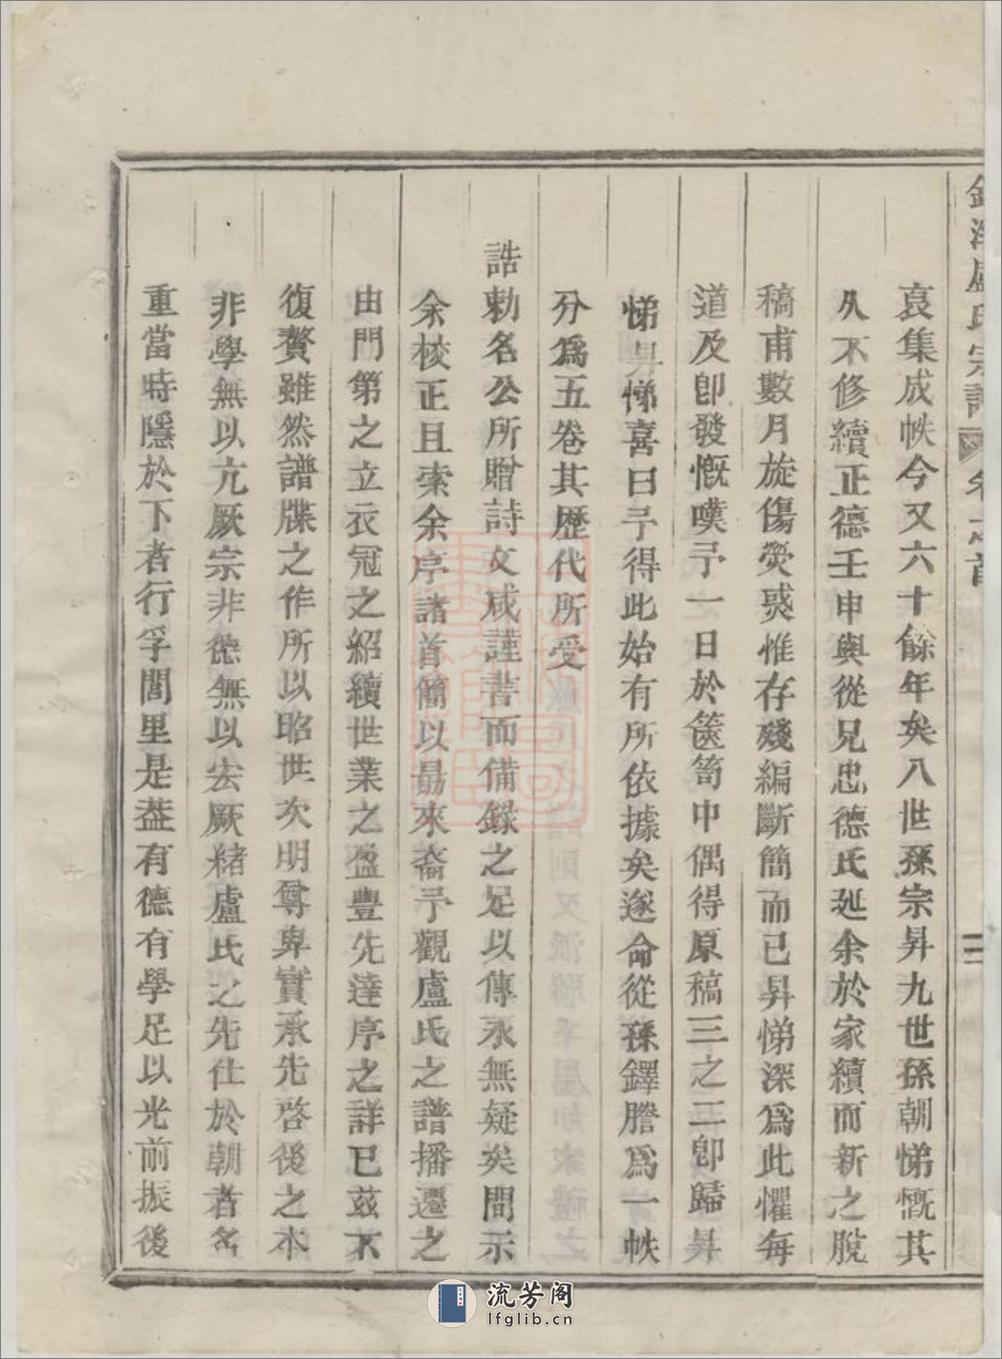 盧氏宗譜 卷之首 二
裒集成帙今又六十餘年矣八世孫宗昇九世孫朝悌慨其
久不修續正德壬申與從兄忠德氏延余於家續而新之脫
稿甫數月旋傷熒惑惟存殘編斷簡而已昇悌深爲此懼每
道及卽發慨嘆予一日於篋笥中偶得原稿三之二卽歸昇
悌昇悌喜曰予得此始有所依據矣遂命從孫鐸謄爲一帙
分爲五卷其歷代所受
誥勅名公所贈詩文咸謹書而備錄之足以傳永無疑矣間示
余校正且索余序諸首簡以勗來裔予觀盧氏之譜播遷之
由門第之立衣冠之紹續世業之盈豐先達序之詳已茲不
復贅雖然譜牒之作所以昭世次明尊卑實承先啓後之本
非學無以亢厥宗非德無以宏厥緒盧氏之先仕於朝者名
重當時隱於下者行孚閭里是葢有德有學足以光前振後
流芳阁
lfglib.cn